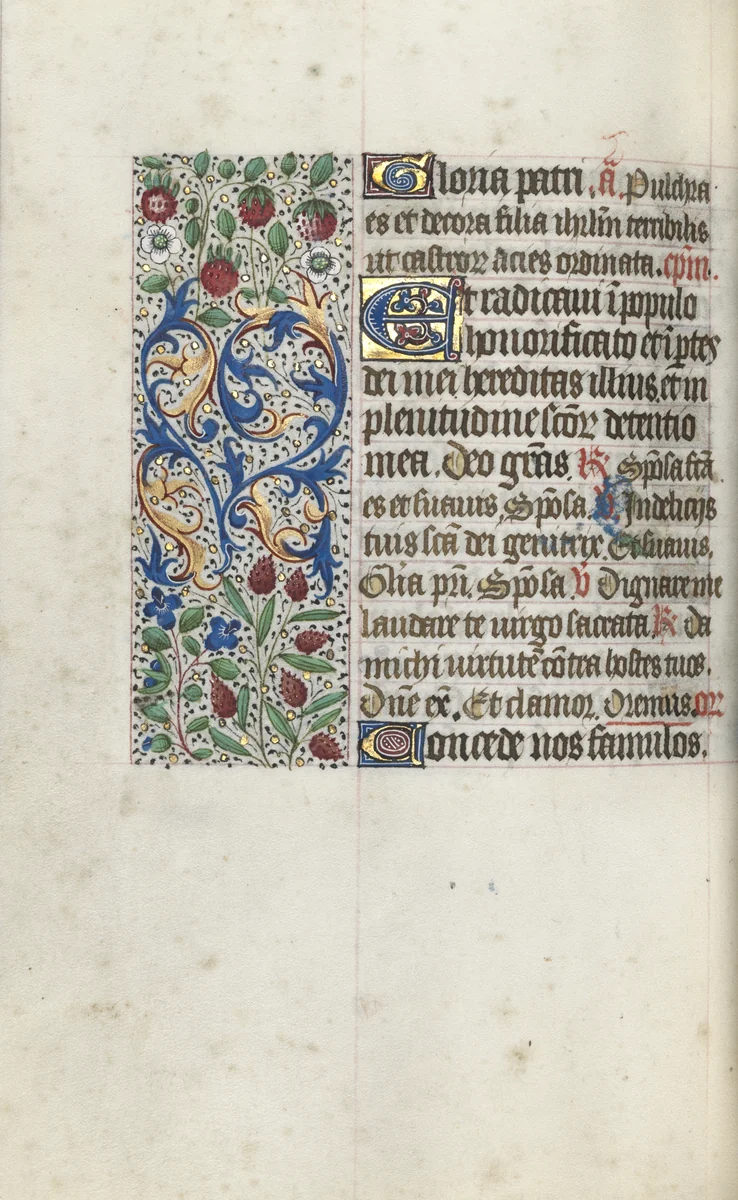 Gloria patri. a̅. Pulchra
es et decora filia ihrl̅m terribilis
ut castroꝝ acies ordinata. cpm̅.
Et radicaui i̅ populo
honorificato et i̅ ptes
dei mei hereditas illius. et in
plenitudine sc̅oꝝ detentio
mea. Deo gr̅as. R̸ Spo̅sa
es et suauis, Spo̅sa. V̸ In delicijs
tuis sc̅a dei genitrix. Et suauis.
Gl̅ia pr̅i. Spo̅sa. V̸ Dignare me
laudare te uirgo sacrata. R̸ da
michi uirtute̅ co̅tra hostes tuos.
Dn̅e ex̅. Et clamor. Oremus. or̅
Concede nos famulos.